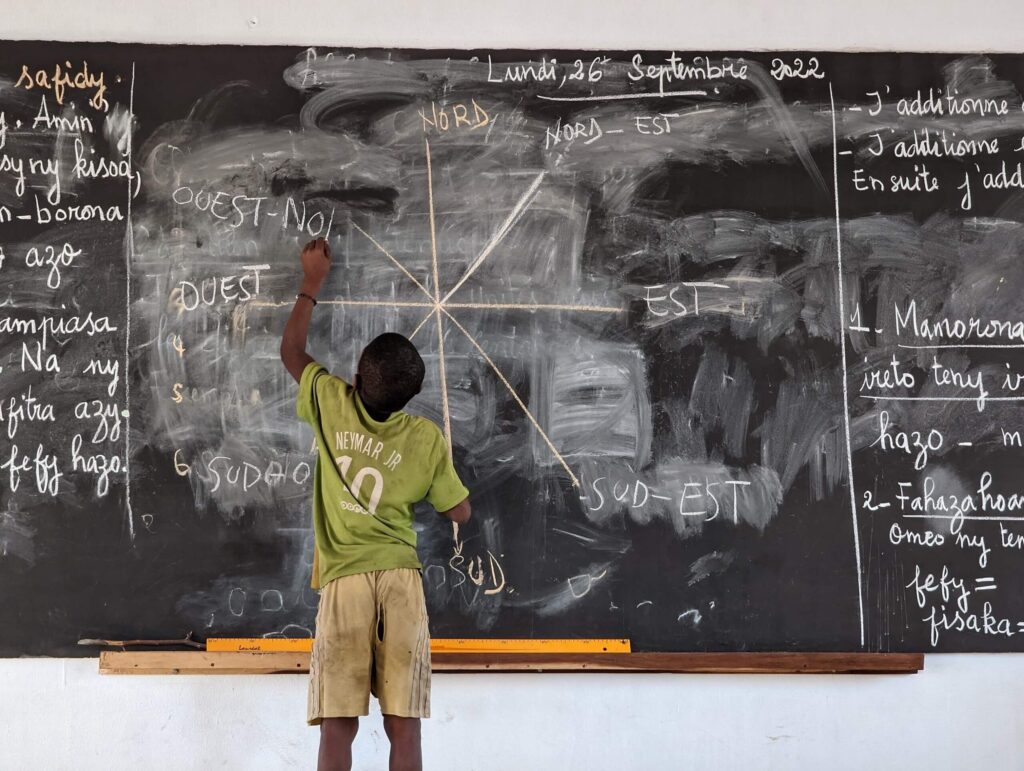 safidy.
Amin
sy ny kisoa,
n-borona
azo
ampiasa
. Na ny
fitra azy.
fefy hazo.
Lundi, 26 Septembre 2022
NORD
NORD-EST
OUEST-NO
OUEST
EST
4
5
6
SUD-EST
SUD
NEYMAR JR
10
- J'additionne
- J'additionne
Ensuite j'add
1- Mamorona
ireto teny
hazo - m
2-
Omeo ny ten
fefy =
fisaka=